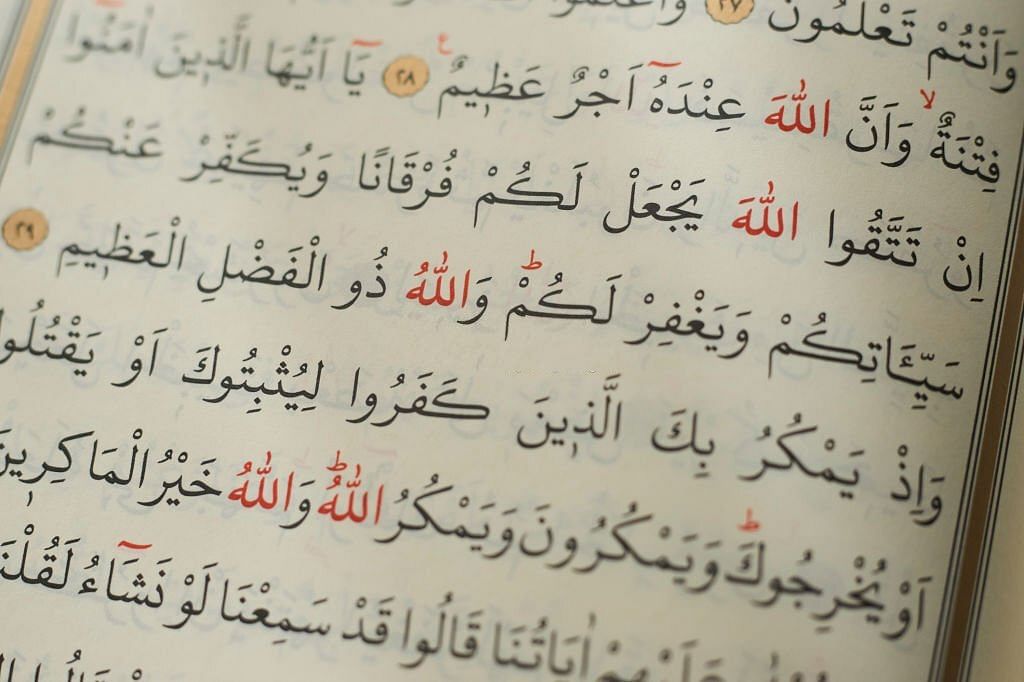 وَاَنْتُمْ تَعْلَمُونَ ٢٧ وَاعْلَمُوا
فِتْنَةٌ ۙ وَاَنَّ اللّٰهَ عِنْدَهُٓ اَجْرٌ عَظ۪يمٌ ۟ ٢٨ يَٓا اَيُّهَا الَّذ۪ينَ اٰمَنُٓوا
اِنْ تَتَّقُوا اللّٰهَ يَجْعَلْ لَكُمْ فُرْقَانًا وَيُكَفِّرْ عَنْكُمْ
سَيِّـَٔاتِكُمْ وَيَغْفِرْ لَكُمْۜ وَاللّٰهُ ذُو الْفَضْلِ الْعَظ۪يمِ ٢٩
وَاِذْ يَمْكُرُ بِكَ الَّذ۪ينَ كَفَرُوا لِيُثْبِتُوكَ اَوْ يَقْتُلُو
اَوْ يُخْرِجُوكَۜ وَيَمْكُرُونَ وَيَمْكُرُ اللّٰهُۜ وَاللّٰهُ خَيْرُ الْمَاكِر۪ينَ
عَلَيْهِمْ اٰيَاتُنَا قَالُوا قَدْ سَمِعْنَا لَوْ نَشَٓاءُ لَقُلْنَا